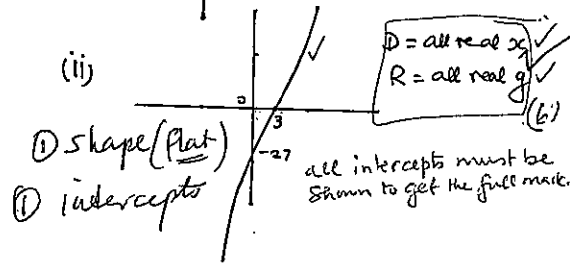 (ii)
D = all real x ✓
R = all real y ✓
(b)
0
3
-27
① shape (flat)
① intercepts
all intercepts must be
shown to get the full mark.